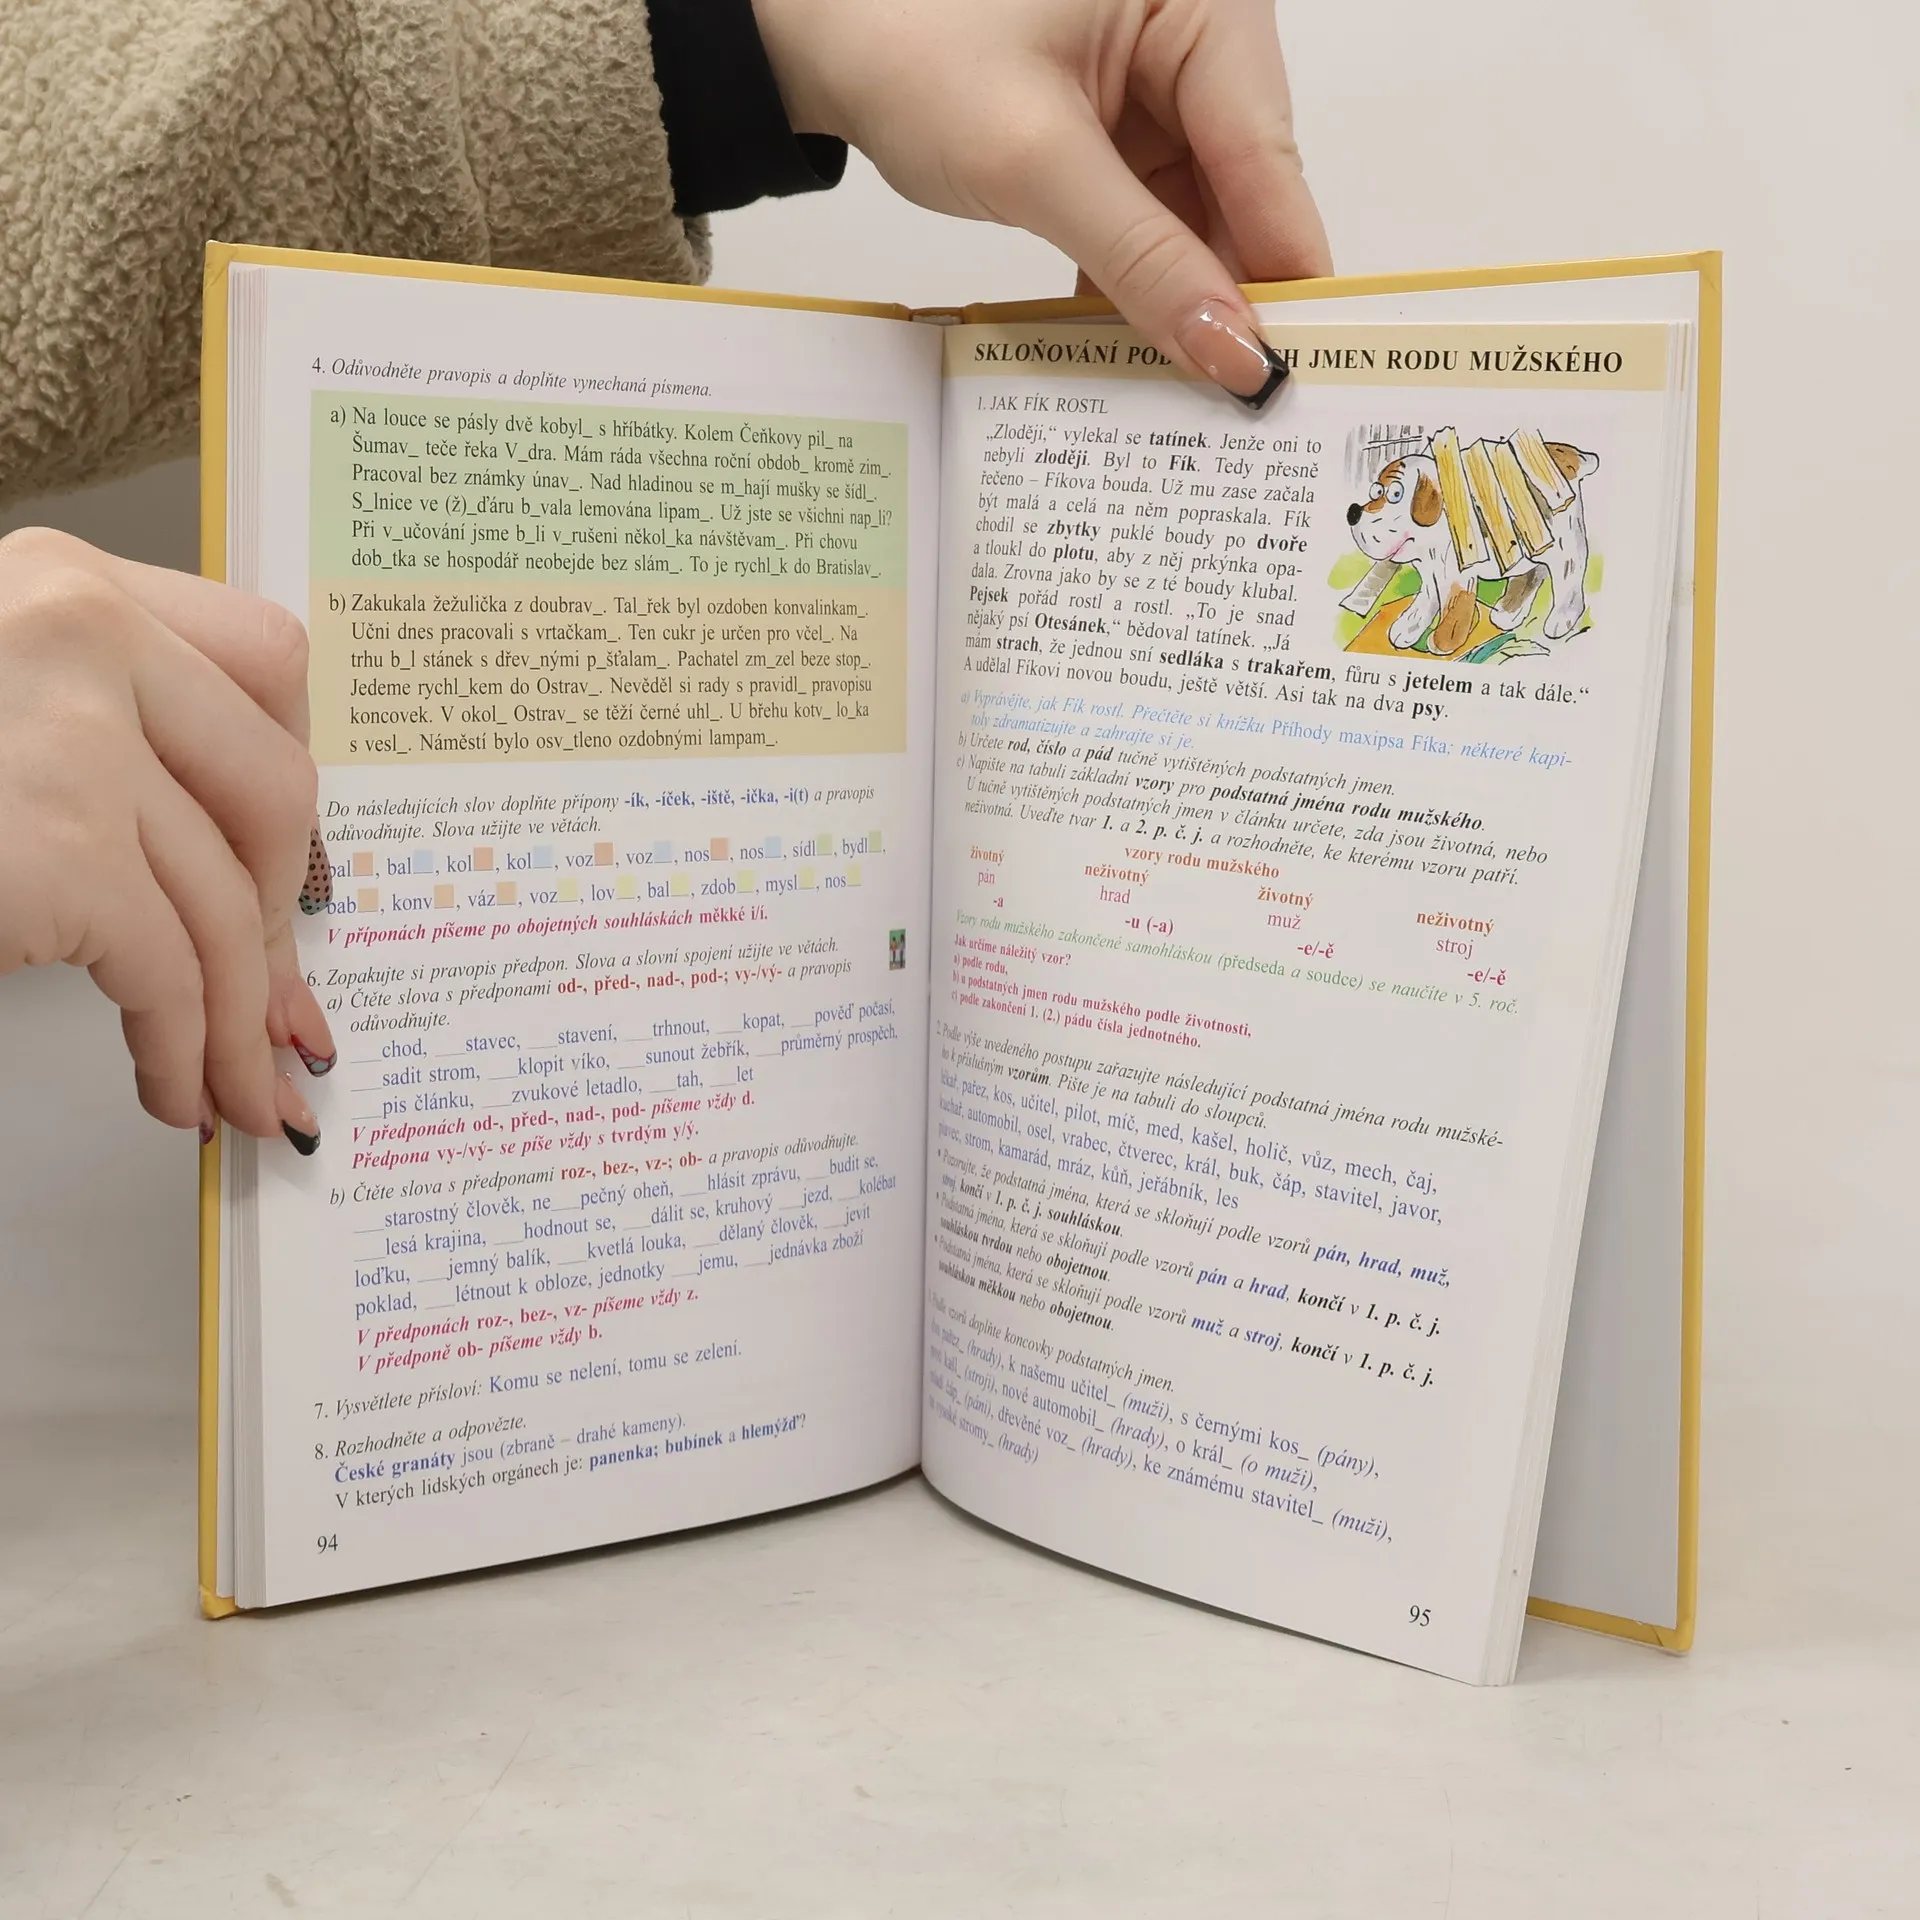 4. Odůvodněte pravopis a doplňte vynechaná písmena.
a) Na louce se pásly dvě kobyl_ s hříbátky. Kolem Čeňkovy pil_ na
Šumav_ teče řeka V_dra. Mám ráda všechna roční obdob_ kromě zim_.
Pracoval bez známky únav_. Nad hladinou se m_hají mušky se šídl_.
S_lnice ve (ž)_ďáru b_vala lemována lipam_. Už jste se všichni nap_li?
Při v_učování jsme b_li v_rušeni někol_ka návštěvam_. Při chovu
dob_tka se hospodář neobejde bez slám_. To je rychl_k do Bratislav_.
b) Zakukala žežulička z doubrav_. Tal_řek byl ozdoben konvalinkam_.
Učni dnes pracovali s vrtačkam_. Ten cukr je určen pro včel_. Na
trhu b_l stánek s dřev_nými p_šťalam_. Pachatel zm_zel beze stop_.
Jedeme rychl_kem do Ostrav_. Nevěděl si rady s pravidl_ pravopisu
koncovek. V okol_ Ostrav_ se těží černé uhl_. U břehu kotv_ lo_ka
s vesl_. Náměstí bylo osv_tleno ozdobnými lampam_.
Do následujících slov doplňte přípony -ík, -íček, -iště, -ička, -i(t) a pravopis
odůvodňujte. Slova užijte ve větách.
bal_, bal_, kol_, kol_, voz_, voz_, nos_, nos_, sídl_, bydl_,
bab_, konv_, váz_, voz_, lov_, bal_, zdob_, mysl_, nos_
V příponách píšeme po obojetných souhláskách měkké i/í.
6. Zopakujte si pravopis předpon. Slova a slovní spojení užijte ve větách.
a) Čtěte slova s předponami od-, před-, nad-, pod-; vy-/vý- a pravopis
odůvodňujte.
__chod, __stavec, __stavení, __trhnout, __kopat, __pověď počasí,
__sadit strom, __klopit víko, __sunout žebřík, __průměrný prospěch,
__pis článku, __zvukové letadlo, __tah, __let
V předponách od-, před-, nad-, pod- píšeme vždy d.
Předpona vy-/vý- se píše vždy s tvrdým y/ý.
b) Čtěte slova s předponami roz-, bez-, vz-; ob- a pravopis odůvodňujte.
__starostný člověk, ne__pečný oheň, __hlásit zprávu, __budit se,
__lesá krajina, __hodnout se, __dálit se, kruhový __jezd, __kolébat
loďku, __jemný balík, __kvetlá louka, __dělaný člověk, __jevit
poklad, __létnout k obloze, jednotky __jemu, __jednávka zboží
V předponách roz-, bez-, vz- píšeme vždy z.
V předponě ob- píšeme vždy b.
7. Vysvětlete přísloví: Komu se nelení, tomu se zelení.
8. Rozhodněte a odpovězte.
České granáty jsou (zbraně – drahé kameny).
V kterých lidských orgánech je: panenka; bubínek a hlemýžď?
94
SKLOŇOVÁNÍ JMEN RODU MUŽSKÉHO
1. JAK FÍK ROSTL
„Zloději,“ vylekal se tatínek. Jenže oni to
nebyli zloději. Byl to Fík. Tedy přesně
řečeno – Fíkova bouda. Už mu zase začala
být malá a celá na něm popraskala. Fík
chodil se zbytky puklé boudy po dvoře
a tloukl do plotu, aby z něj prkýnka opa-
dala. Zrovna jako by se z té boudy klubal.
Pejsek pořád rostl a rostl. „To je snad
nějaký psí Otesánek,“ bědoval tatínek. „Já
mám strach, že jednou sní sedláka s trakařem, fůru s jetelem a tak dále.“
A udělal Fíkovi novou boudu, ještě větší. Asi tak na dva psy.
a) Vyprávějte, jak Fík rostl. Přečtěte si knížku Příhody maxipsa Fíka; některé kapi-
toly zdramatizujte a zahrajte si je.
b) Určete rod, číslo a pád tučně vytištěných podstatných jmen.
c) Napište na tabuli základní vzory pro podstatná jména rodu mužského.
U tučně vytištěných podstatných jmen v článku určete, zda jsou životná, nebo
neživotná. Uveďte tvar 1. a 2. p. č. j. a rozhodněte, ke kterému vzoru patří.
vzory rodu mužského
životný neživotný životný neživotný
pán hrad muž stroj
-a -u (-a) -e/-ě -e/-ě
Vzory rodu mužského zakončené samohláskou (předseda a soudce) se naučíte v 5. roč.
Jak určíme náležitý vzor?
a) podle rodu,
b) u podstatných jmen rodu mužského podle životnosti,
c) podle zakončení 1. (2.) pádu čísla jednotného.
2. Podle výše uvedeného postupu zařazujte následující podstatná jména rodu mužské-
ho k příslušným vzorům. Pište je na tabuli do sloupců.
lékař, pařez, kos, učitel, pilot, míč, med, kašel, holič, vůz, mech, čaj,
kuchař, automobil, osel, vrabec, čtverec, král, buk, čáp, stavitel, javor,
plavec, strom, kamarád, mráz, kůň, jeřábník, les
• Pozorujte, že podstatná jména, která se skloňují podle vzorů pán, hrad, muž,
stroj, končí v 1. p. č. j. souhláskou.
• Podstatná jména, která se skloňují podle vzorů pán a hrad, končí v 1. p. č. j.
souhláskou tvrdou nebo obojetnou.
• Podstatná jména, která se skloňují podle vzorů muž a stroj, končí v 1. p. č. j.
souhláskou měkkou nebo obojetnou.
Podle vzorů doplňte koncovky podstatných jmen.
pařez_ (hrady), k našemu učitel_ (muži), s černými kos_ (pány),
kašl_ (stroji), nové automobil_ (hrady), o král_ (o muži),
čáp_ (páni), dřevěné voz_ (hrady), ke známému stavitel_ (muži),
vysoké stromy_ (hrady)
95